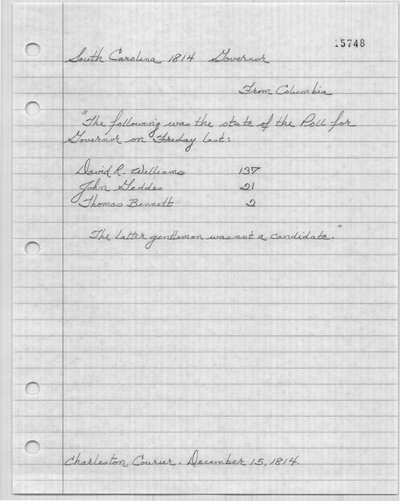 15748
South Carolina 1814 Governor
From Columbia
"The following was the state of the Poll for
Governor on Friday last:
David R. Williams 137
John Geddes 21
Thomas Bennett 2
The latter gentleman was not a candidate."
Charleston Courier. December 15, 1814.